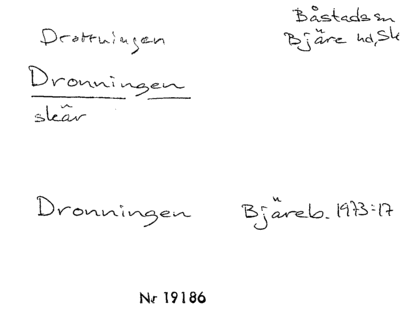 Båstads sn
Drottningen
Bjäre hd, Sk
Dronningen
skär
Dronningen Bjäreb. 1973:17
Nr 19186